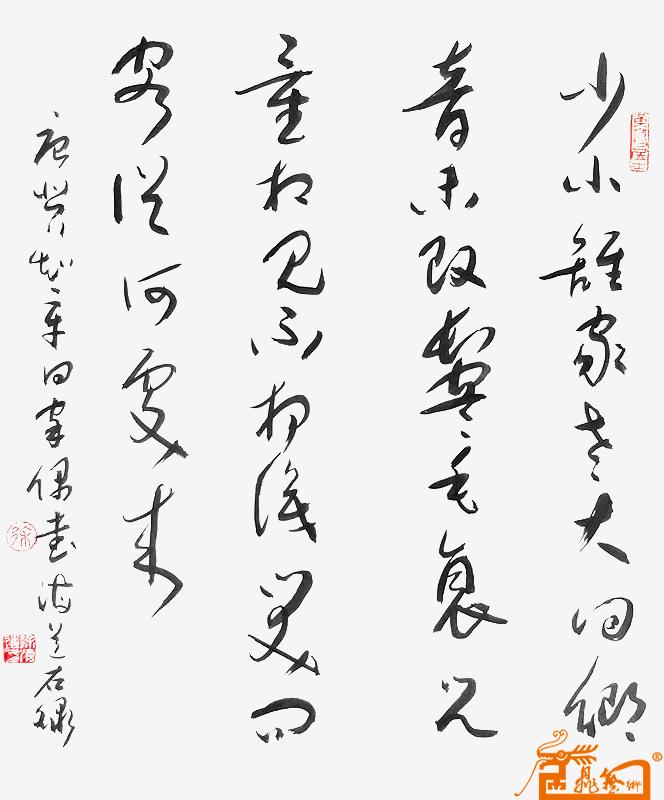 少小離家老大回鄉
音未改鬢毛衰兒
童相見不相識笑問
客從何處來
唐賀知章回家偶書